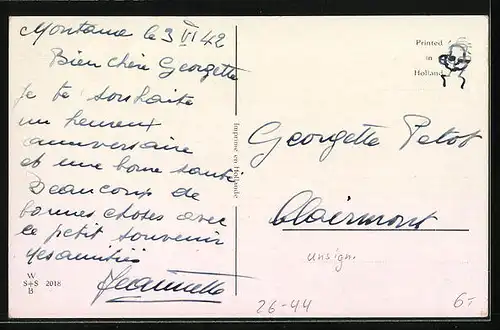 Montana le 3 VI 42
Bien chère Georgette
je te souhaite
un heureux
anniversaire
et une bonne santé
Beaucoup de
bonnes choses avec
ce petit souvenir
Mes amitiés
Jeannette
W
S+S 2018
B
Imprimé en Hollande
Printed
in
Holland
Georgette Petot
Clairmont
unsign.
26-44
6.-